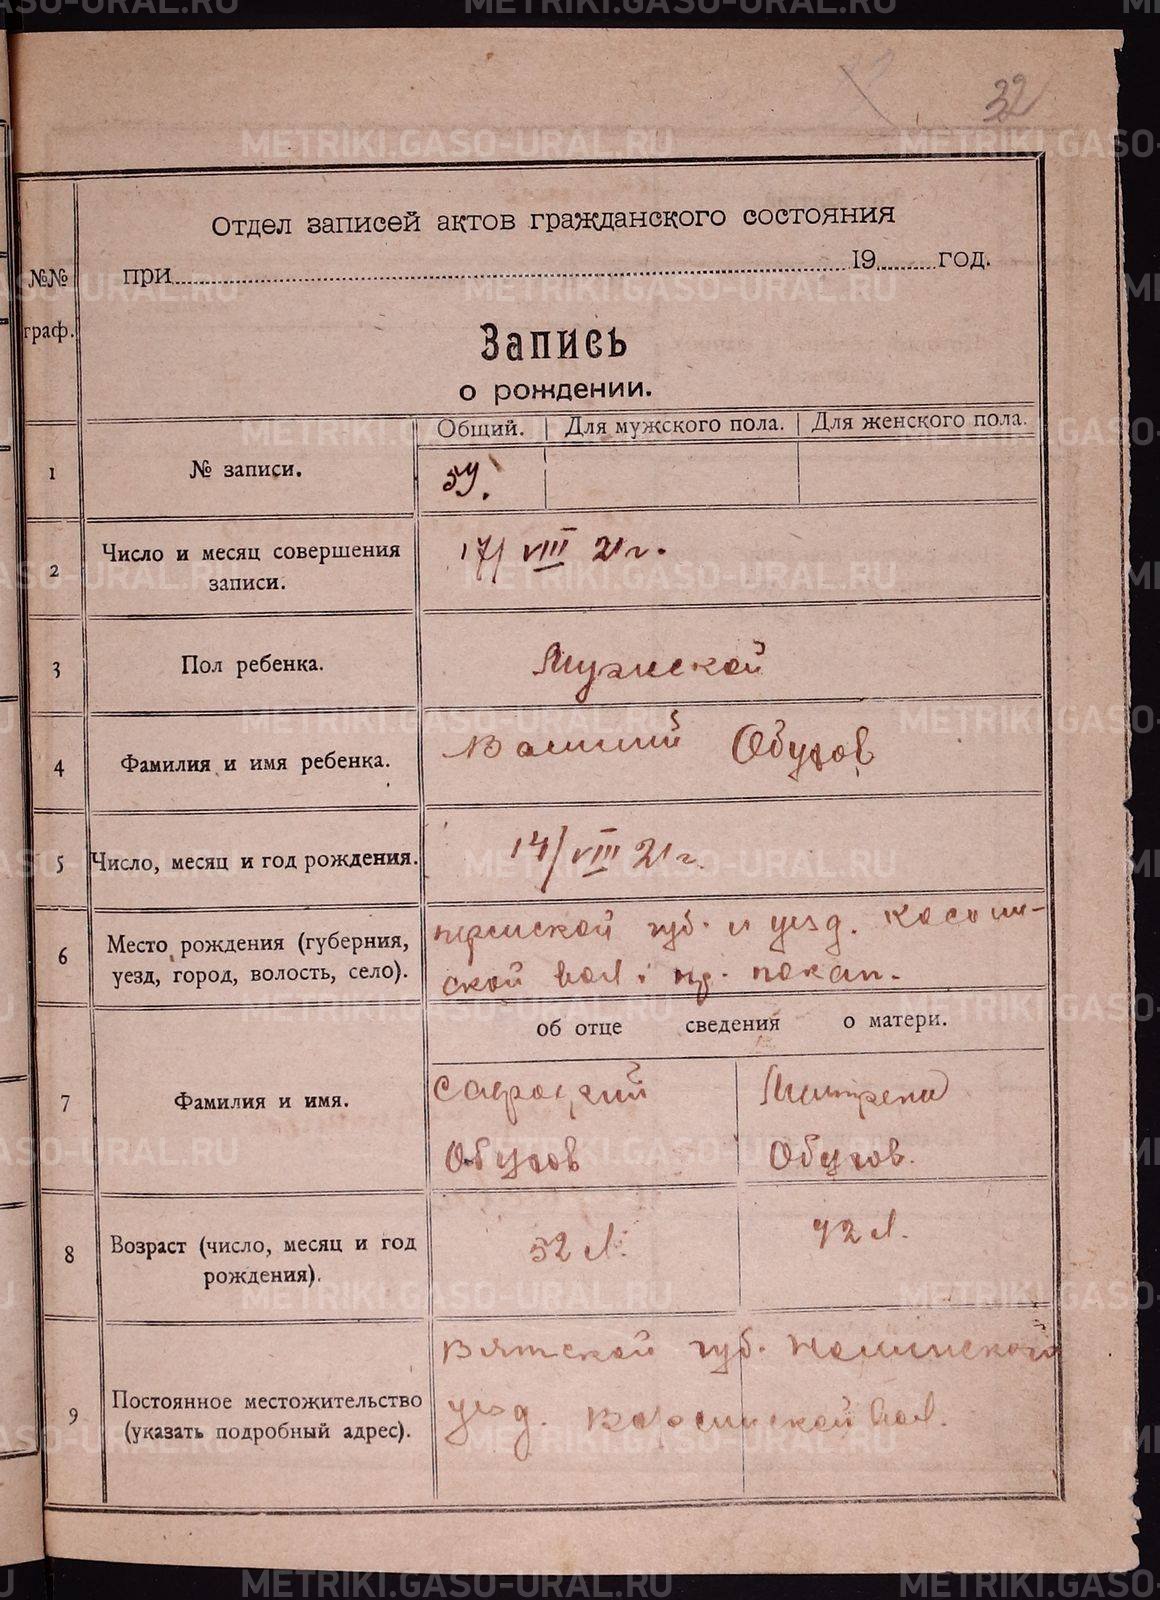 32
Отдел записей актов гражданского состояния
при 19 год.
№№ граф.
Запись
о рождении.
Общий. Для мужского пола. Для женского пола.
1 № записи. 59.
2 Число и месяц совершения записи. 17/VIII 21 г.
3 Пол ребенка. Мужской
4 Фамилия и имя ребенка. Обухов
5 Число, месяц и год рождения. 14/VIII 21 г.
6 Место рождения (губерния, пермской губ. и уезд.
уезд, город, волость, село). ской вол.
об отце сведения о матери.
7 Фамилия и имя.
Обухов Обухов.
8 Возраст (число, месяц и год рождения). 52 л. 42 л.
9 Постоянное местожительство Вятской губ. Нолинского
(указать подробный адрес). уезд. вол.
METRIKI.GASO-URAL.RU